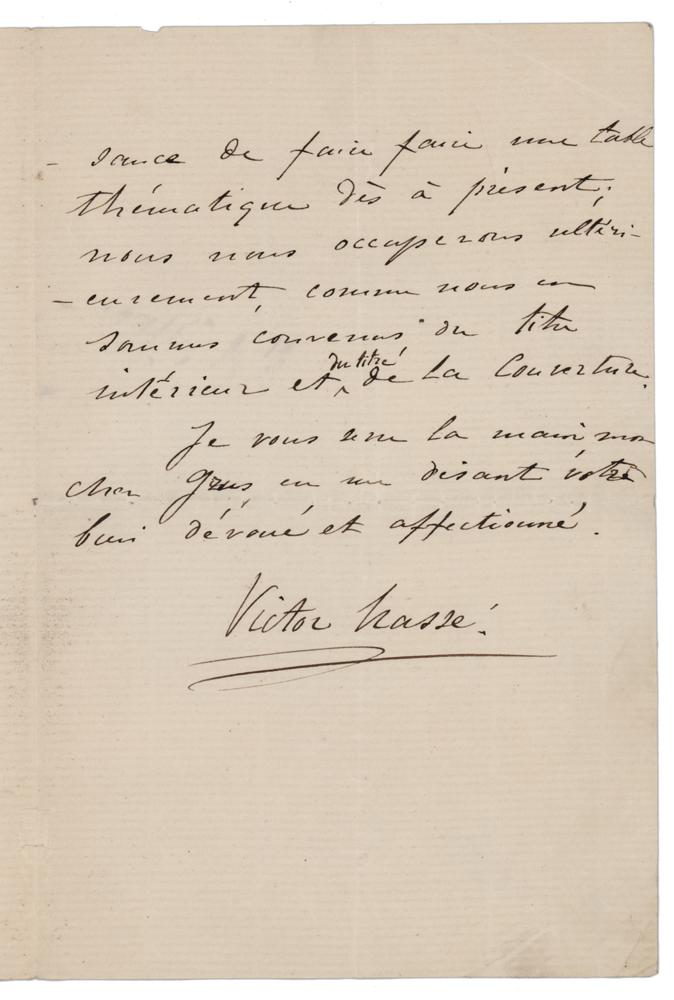 - sance de faire faire une table
thématique dès à présent;
nous nous occuperons ultéri-
- eurement, comme nous en
sommes convenus, du titre
intérieur et du titre de la Couverture.
Je vous serre la main mon
cher Grus en me disant votre
bien dévoué et affectionné.
Victor Massé.